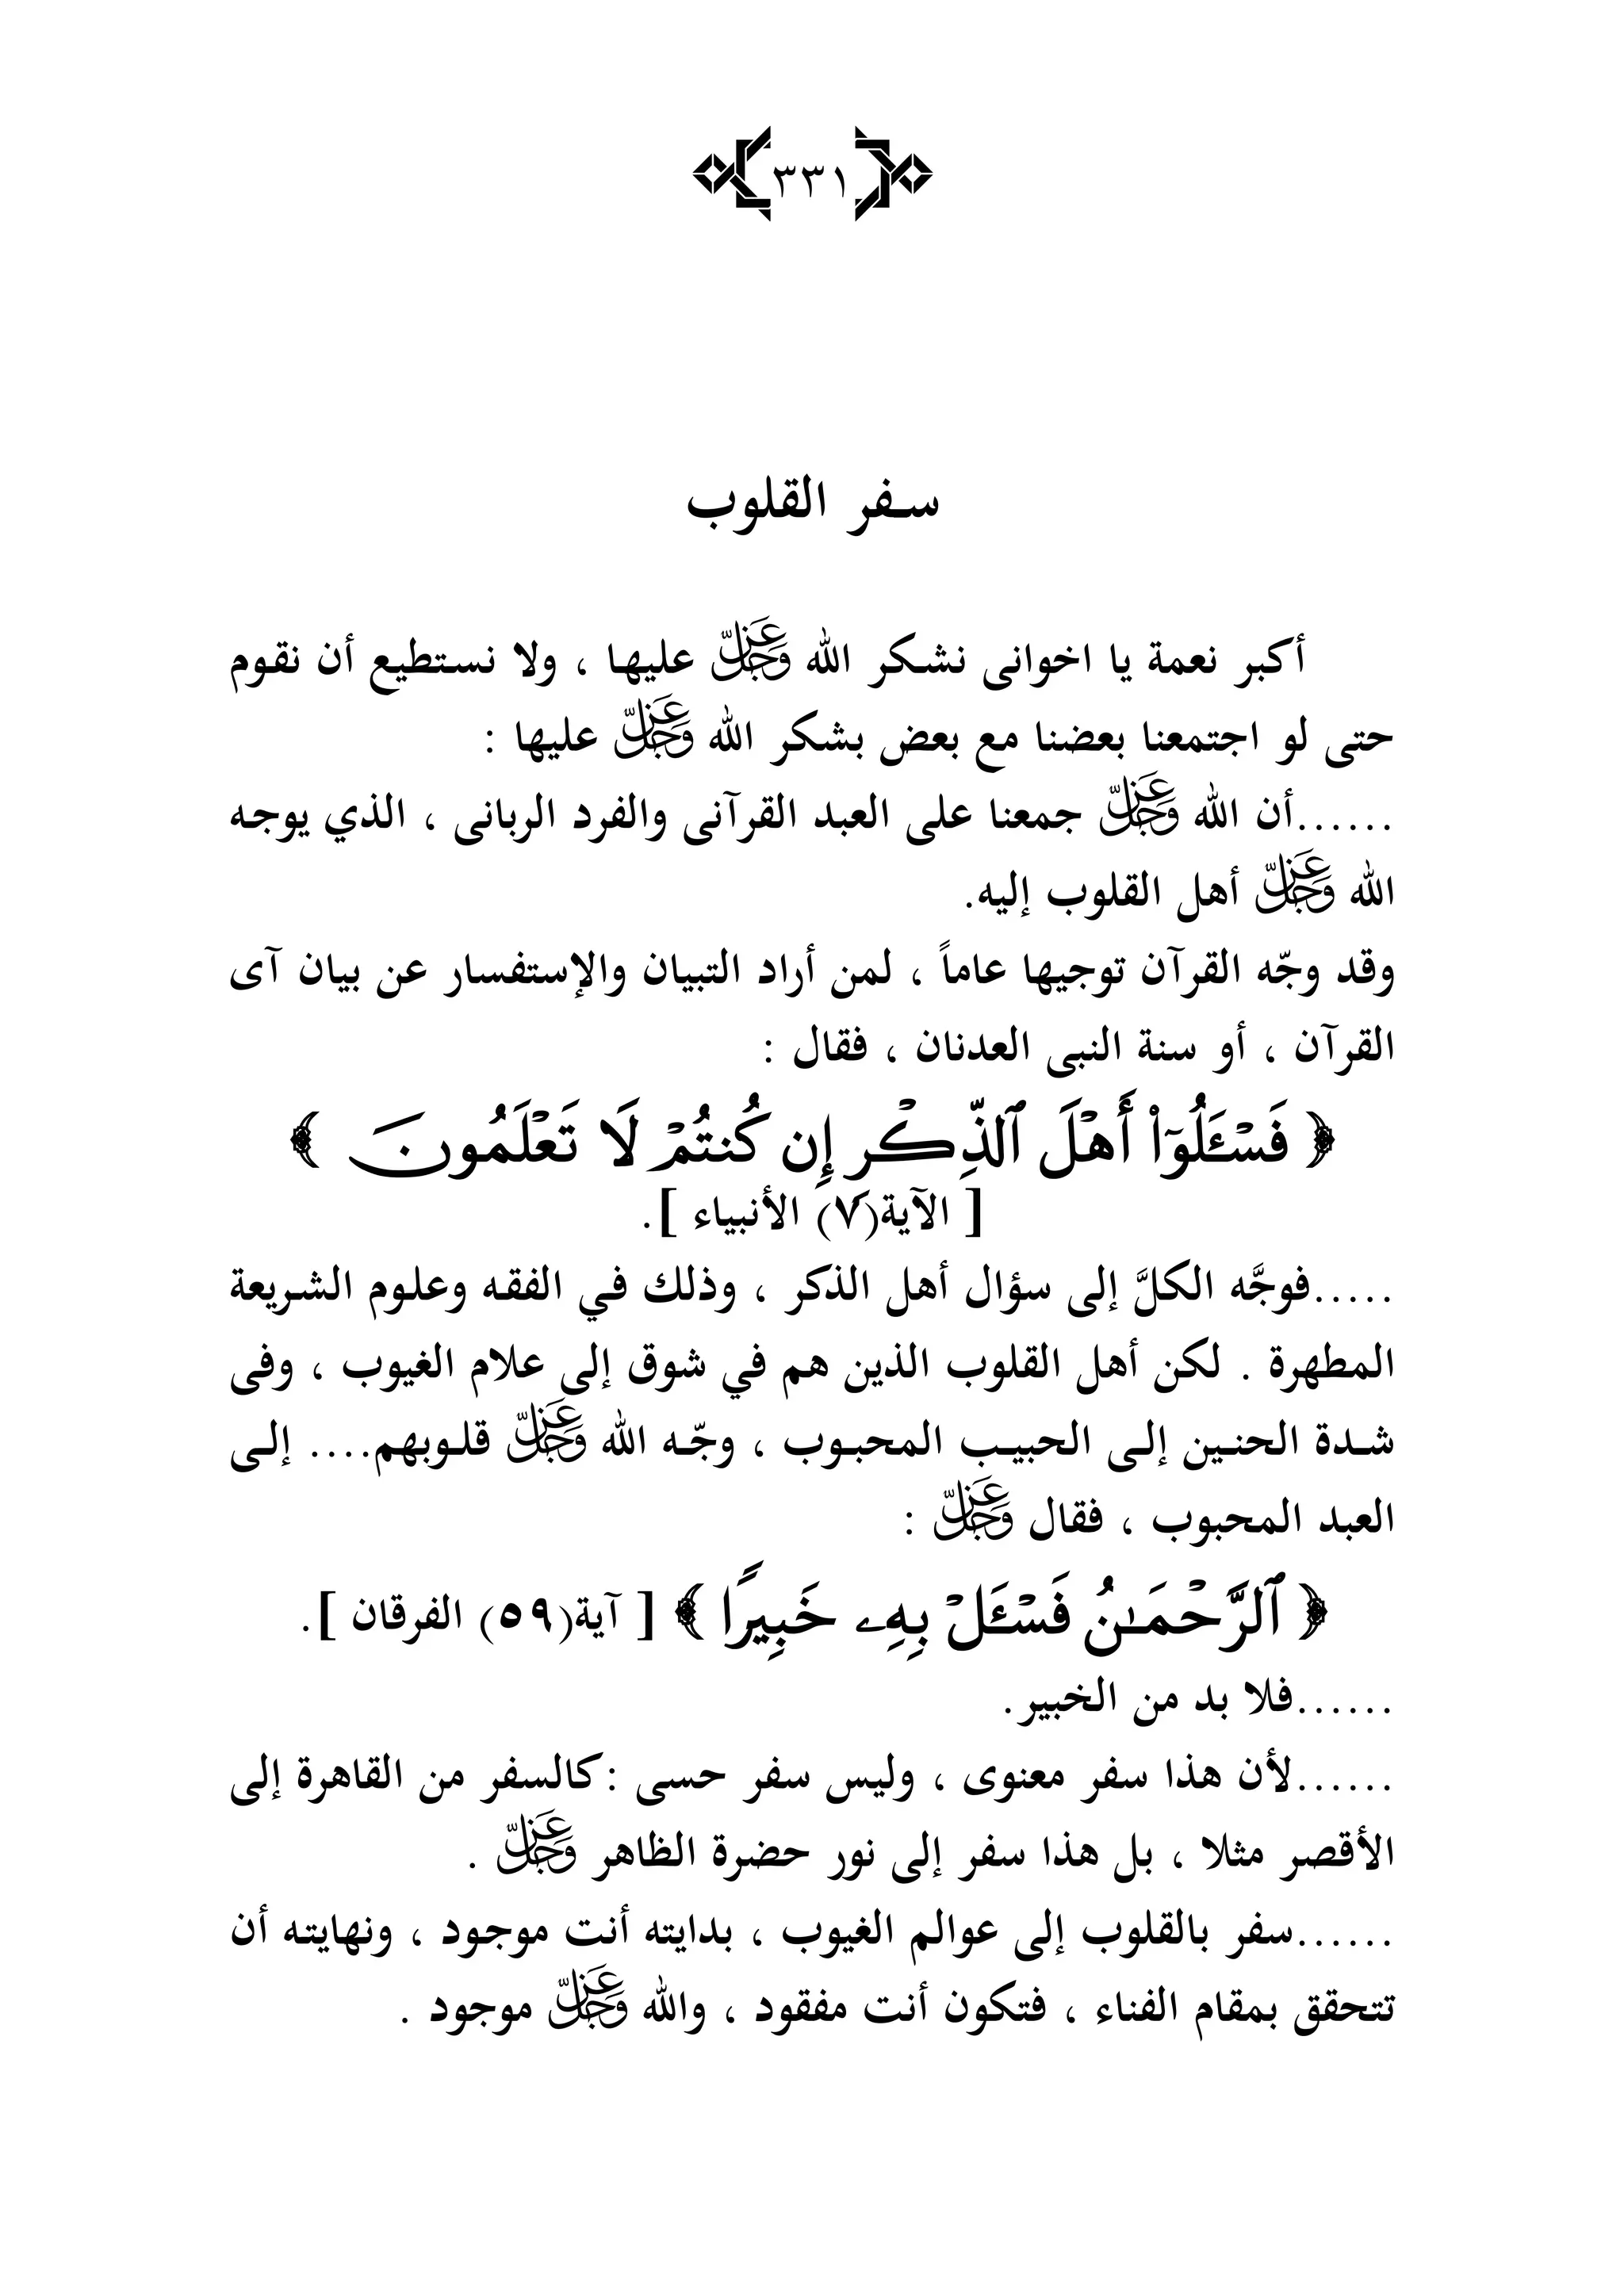 ٣٣١
سفر القلوب
أكبر نعمة يا اخوانى نشكر الله عز وجل عليها ، ولا نستطيع أن نقوم
حتى لو اجتمعنا بعضنا مع بعض بشكر الله عز وجل عليها :
......أن الله عز وجل جمعنا على العبد القرآنى والفرد الربانى ، الذي يوجه
الله عز وجل أهل القلوب إليه.
وقد وجّه القرآن توجيها عاماً ، لمن أراد التبيان والإستفسار عن بيان آى
القرآن ، أو سنة النبى العدنان ، فقال :
﴿ فَسْـَٔلُوٓا۟ أَهْلَ ٱلذِّكْرِ إِن كُنتُمْ لَا تَعْلَمُونَ ﴾
[ الآية(٧) الأنبياء ].
.....فوجَّه الكلَّ إلى سؤال أهل الذكر ، وذلك في الفقه وعلوم الشريعة
المطهرة . لكن أهل القلوب الذين هم في شوق إلى علام الغيوب ، وفى
شدة الحنين إلى الحبيب المحبوب ، وجّه الله عز وجل قلوبهم.... إلى
العبد المحبوب ، فقال عز وجل :
﴿ ٱلرَّحْمَـٰنُ فَسْـَٔلْ بِهِۦ خَبِيرًا ﴾ [ آية(٥٩) الفرقان ].
......فلا بد من الخبير.
......لأن هذا سفر معنوى ، وليس سفر حسى :كالسفر من القاهرة إلى
الأقصر مثلا ، بل هذا سفر إلى نور حضرة الظاهر عز وجل .
......سفر بالقلوب إلى عوالم الغيوب ، بدايته أنت موجود ، ونهايته أن
تتحقق بمقام الفناء ، فتكون أنت مفقود ، والله عز وجل موجود .